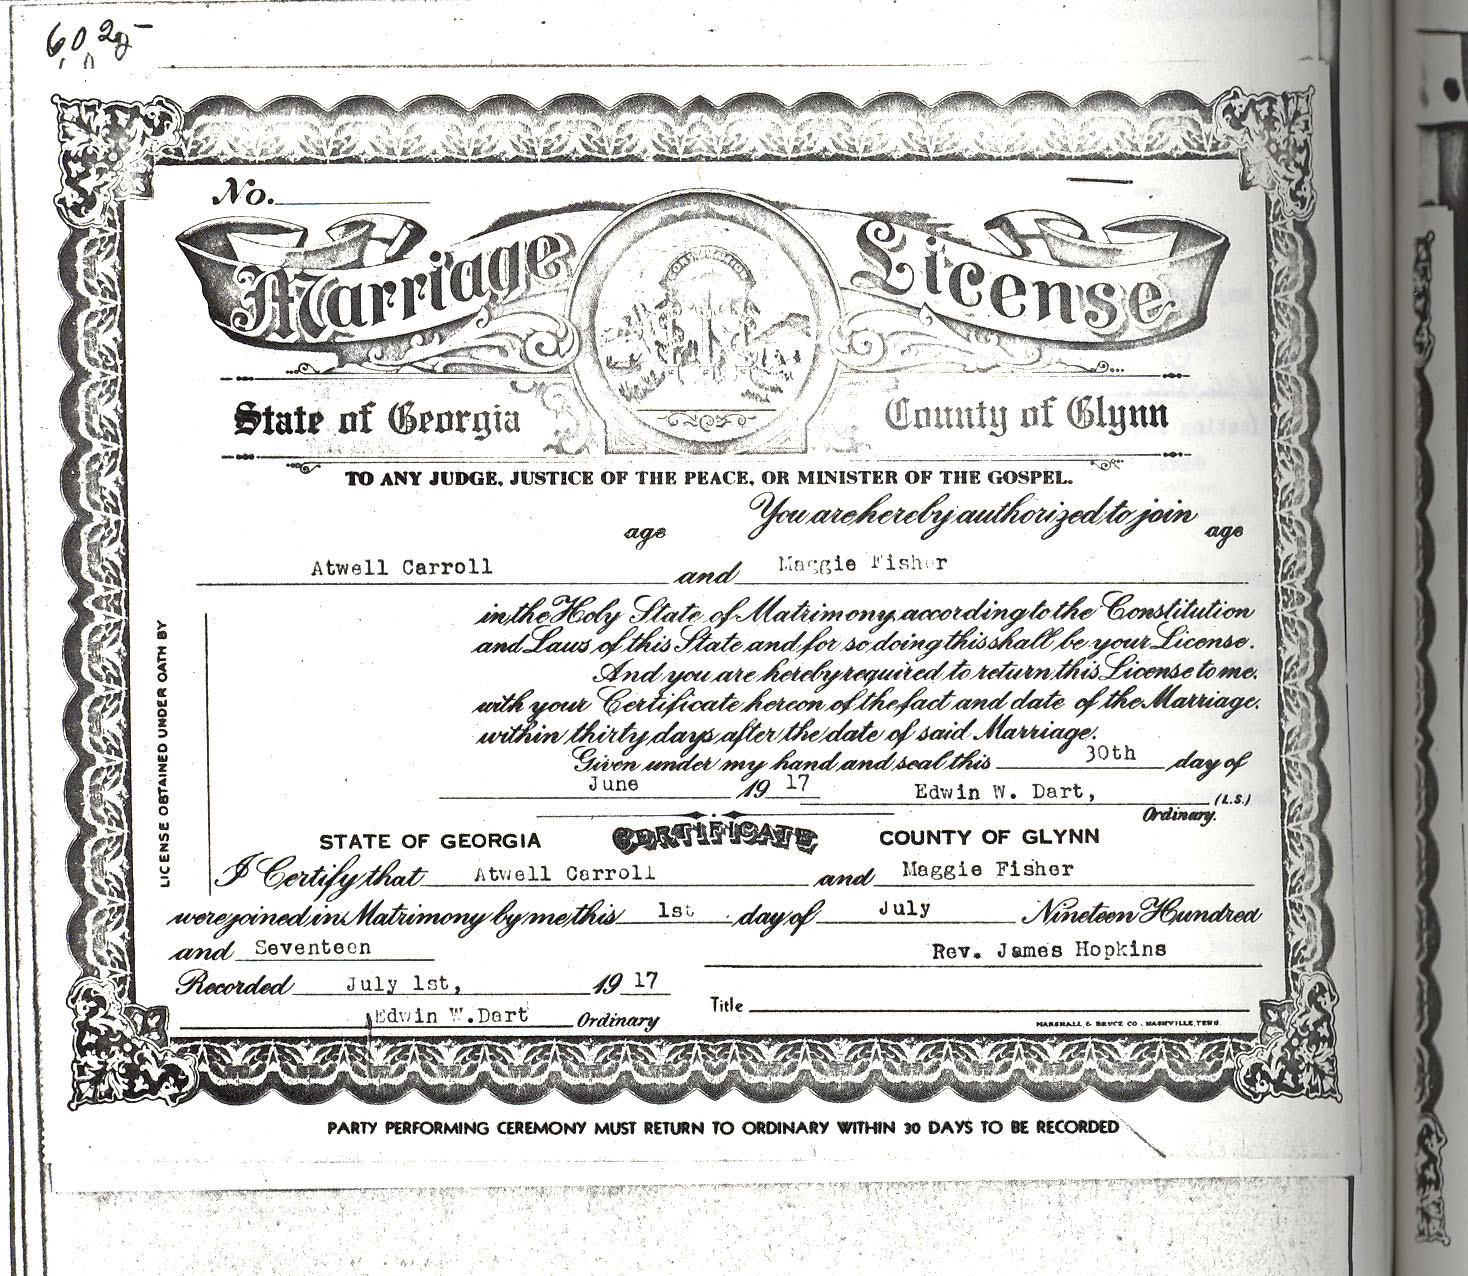 No.
Marriage License
CONSTITUTION
State of Georgia County of Glynn
TO ANY JUDGE, JUSTICE OF THE PEACE, OR MINISTER OF THE GOSPEL.
You are hereby authorized to join
age age
Atwell Carroll and Maggie Fisher
in the Holy State of Matrimony, according to the Constitution
and Laws of this State and for so doing this shall be your License.
And you are hereby required to return this License to me,
with your Certificate hereon of the fact and date of the Marriage,
within thirty days after the date of said Marriage.
Given under my hand and seal this 30th day of
June 19 17 Edwin W. Dart, (L.S.)
Ordinary.
LICENSE OBTAINED UNDER OATH BY
STATE OF GEORGIA CERTIFICATE COUNTY OF GLYNN
I Certify that Atwell Carroll and Maggie Fisher
were joined in Matrimony by me this 1st day of July Nineteen Hundred
and Seventeen Rev. James Hopkins
Recorded July 1st, 19 17
Title
Edwin W.Dart Ordinary
MARSHALL & BRUCE CO. NASHVILLE, TENN.
PARTY PERFORMING CEREMONY MUST RETURN TO ORDINARY WITHIN 30 DAYS TO BE RECORDED